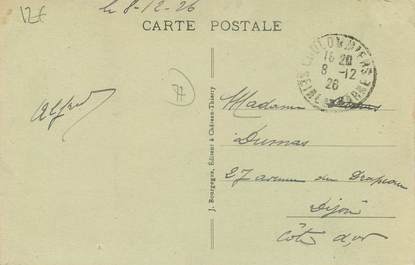 12€
le 8-12-26
CARTE POSTALE
COULOMMIERS
16 20
8 -12
26
SEINE ET MARNE
Alfred
77
J. Bourgogne, Éditeur à Château-Thierry
Madame
Dumas
27 avenue du Drapeau
Dijon
Côte d'or